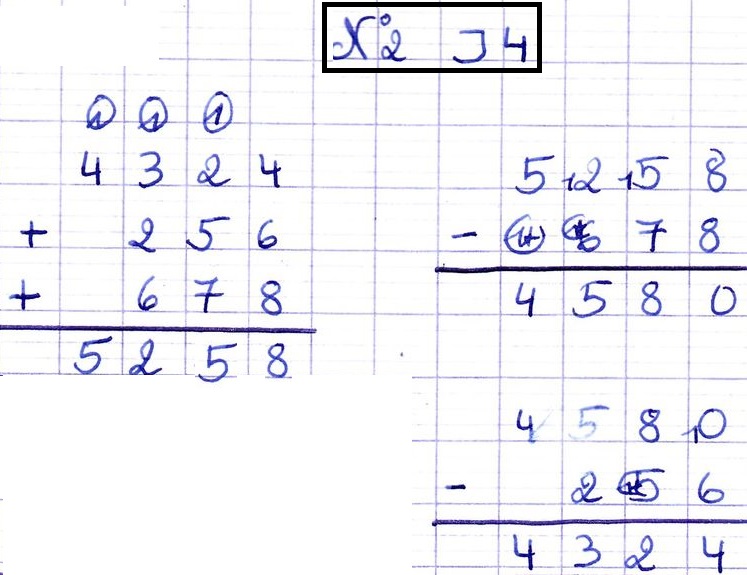 N°2 J4
① ① ①
4 3 2 4
+ 2 5 6
+ 6 7 8
5 2 5 8
5 ₁2 ₁5 8
- (+1) (+1)6 7 8
4 5 8 0
4 5 8 ₁0
- 2 (+1)5 6
4 3 2 4